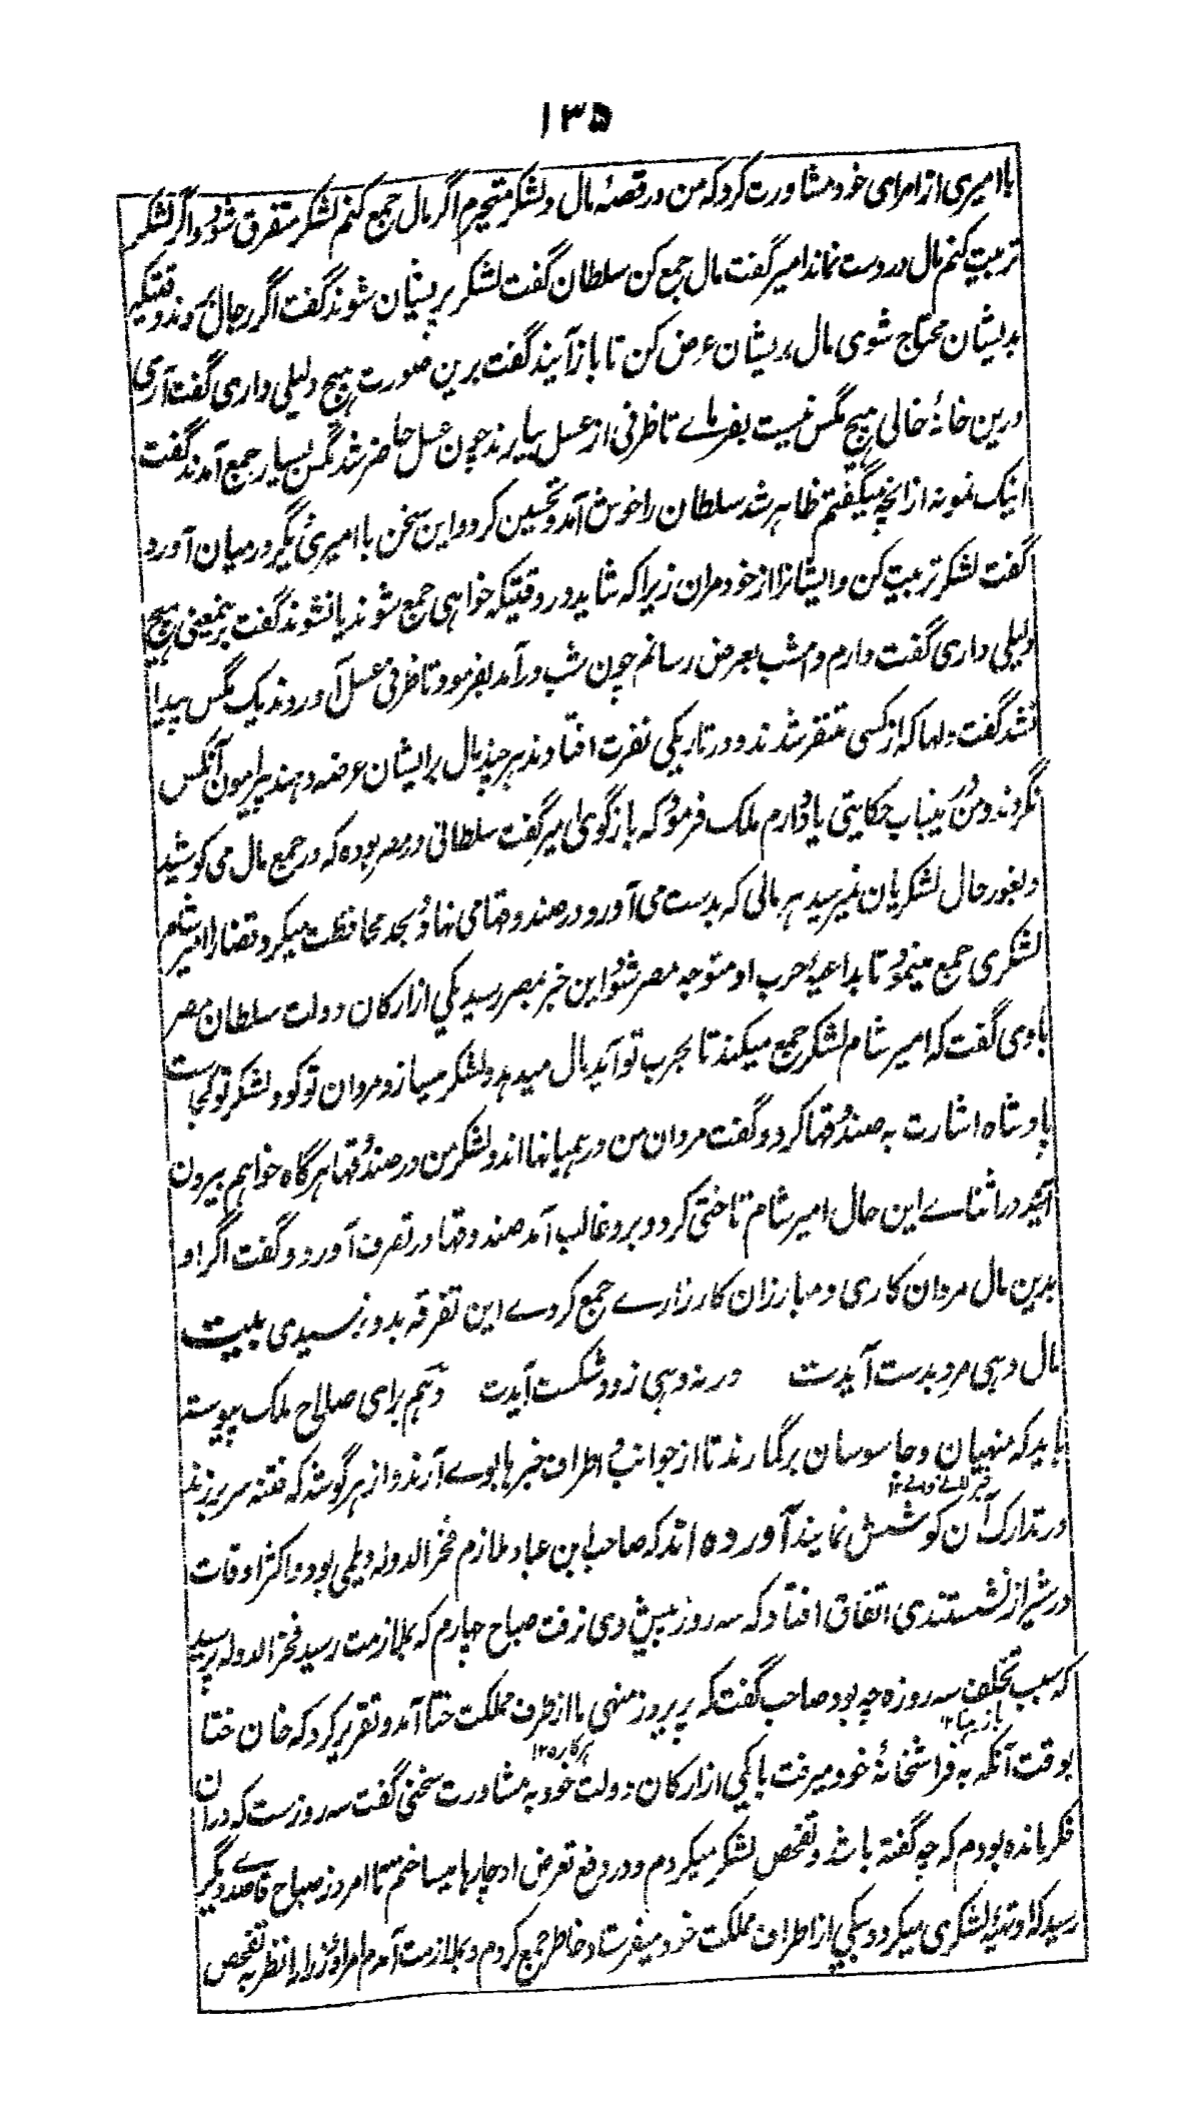 ۱۳۵
با امیری از امرای خود مشاورت کرد که من در قصهٔ مال و لشکر متحیرم اگر مال جمع کنم لشکر متفرق شود و اگر لشکر
تربیت کنم مال در دست نماند امیر گفت مال جمع کن سلطان گفت لشکر پریشان شوند گفت اگر رجال بروند وقتیکه
بدیشان محتاج شوی مال بریشان عرض کن تا باز آیند گفت برین صورت هیچ دلیلی داری گفت آری
درین خانهٔ خالی هیچ مگس نیست بفرماے تا ظرفی از عسل بیارند چون عسل حاضر شد مگس بسیار جمع آمدند گفت
اینک نمونه از آنچه میگفتم ظاهر شد سلطان را خوش آمد و تحسین کرد و این سخن با امیری دیگر در میان آورد
گفت لشکر تربیت کن و ایشانرا از خود مران زیرا که شاید در وقتیکه خواهی جمع شوند یا نشوند گفت برینمعنی هیچ
دلیلی داری گفت دارم و امشب بعرض رسانم چون شب در آمد بفرمود تا ظرفی عسل آوردند یک مگس پیدا
نشد گفت دلها که از کسی متنفر شدند و در تاریکی نفرت افتادند هر چند مال بر ایشان عرضه دهند پیرامون آنکس
نگردند و من درینباب حکایتی یاد دارم ملک فرمود که بازگوی امیر گفت سلطانی در مصر بوده که در جمع مال می کوشید
و بغور حال لشکریان نمیرسید هر مالی که بدست می آورد در صندوقها می نهاد و بجد محافظت میکرد قضا را امیر شام
لشکری جمع مینمود تا بداعیهٔ حرب او متوجه مصر شود این خبر بمصر رسید یکی از ارکان دولت سلطان مصر
با وی گفت که امیر شام لشکر جمع میکند تا بحرب تو آید مال میدهد و لشکر میسازد مردان تو کو و لشکر تو کجاست
پادشاه اشارت به صندوقها کرد و گفت مردان من در همیانها اند و لشکر من در صندوقها هر گاه خواهم بیرون
آیند در اثناے این حال امیر شام تاختی کرد و برو غالب آمد صندوقها در تصرف آورد و گفت اگر او
بدین مال مردان کاری و مبارزان کارزارے جمع کردے این تفرقه بدو نرسیدی بیت
مال دهی مرد بدست آیدت ورنه دهی زود شکست آیدت و هم برای صلاح ملک پیوسته
باید که منهیان و جاسوسان برگمارند تا از جوانب و اطراف خبرها بوے آرند و از هر گوشه که فتنه سر برزند
در تدارک آن کوشش نمایند آورده اند که صاحب ابن عباد ملازم فخر الدوله دیلمی بود و اکثر اوقات
در شیراز نشستندی اتفاق افتاد که سه روز پیش وی نرفت صباح چهارم که بملازمت رسید فخر الدوله پرسید
که سبب تخلف سه روزه چه بود صاحب گفت که پریروز منهی ما از طرف مملکت ختا آمد و تقریر کرد که خان ختا
باز ماند ۱۲
هرکاره ۱۲
بوقت آنکه به فراشخانهٔ خود میرفت با یکی از ارکان دولت خود به مشاورت سخنی گفت سه روزست که در آن
فکر مانده بودم که چه گفته باشد و تفحص لشکر میکردم و در دفع تعرض او چارها میساختم تا امروز صباح قاصدے دیگر
رسید که او تهیهٔ لشکری میکرد و بیکی از اطراف مملکت خود میفرستاد خاطر جمع کردم و بملازمت آمدم امرا و وزرا را نظر به تفحص